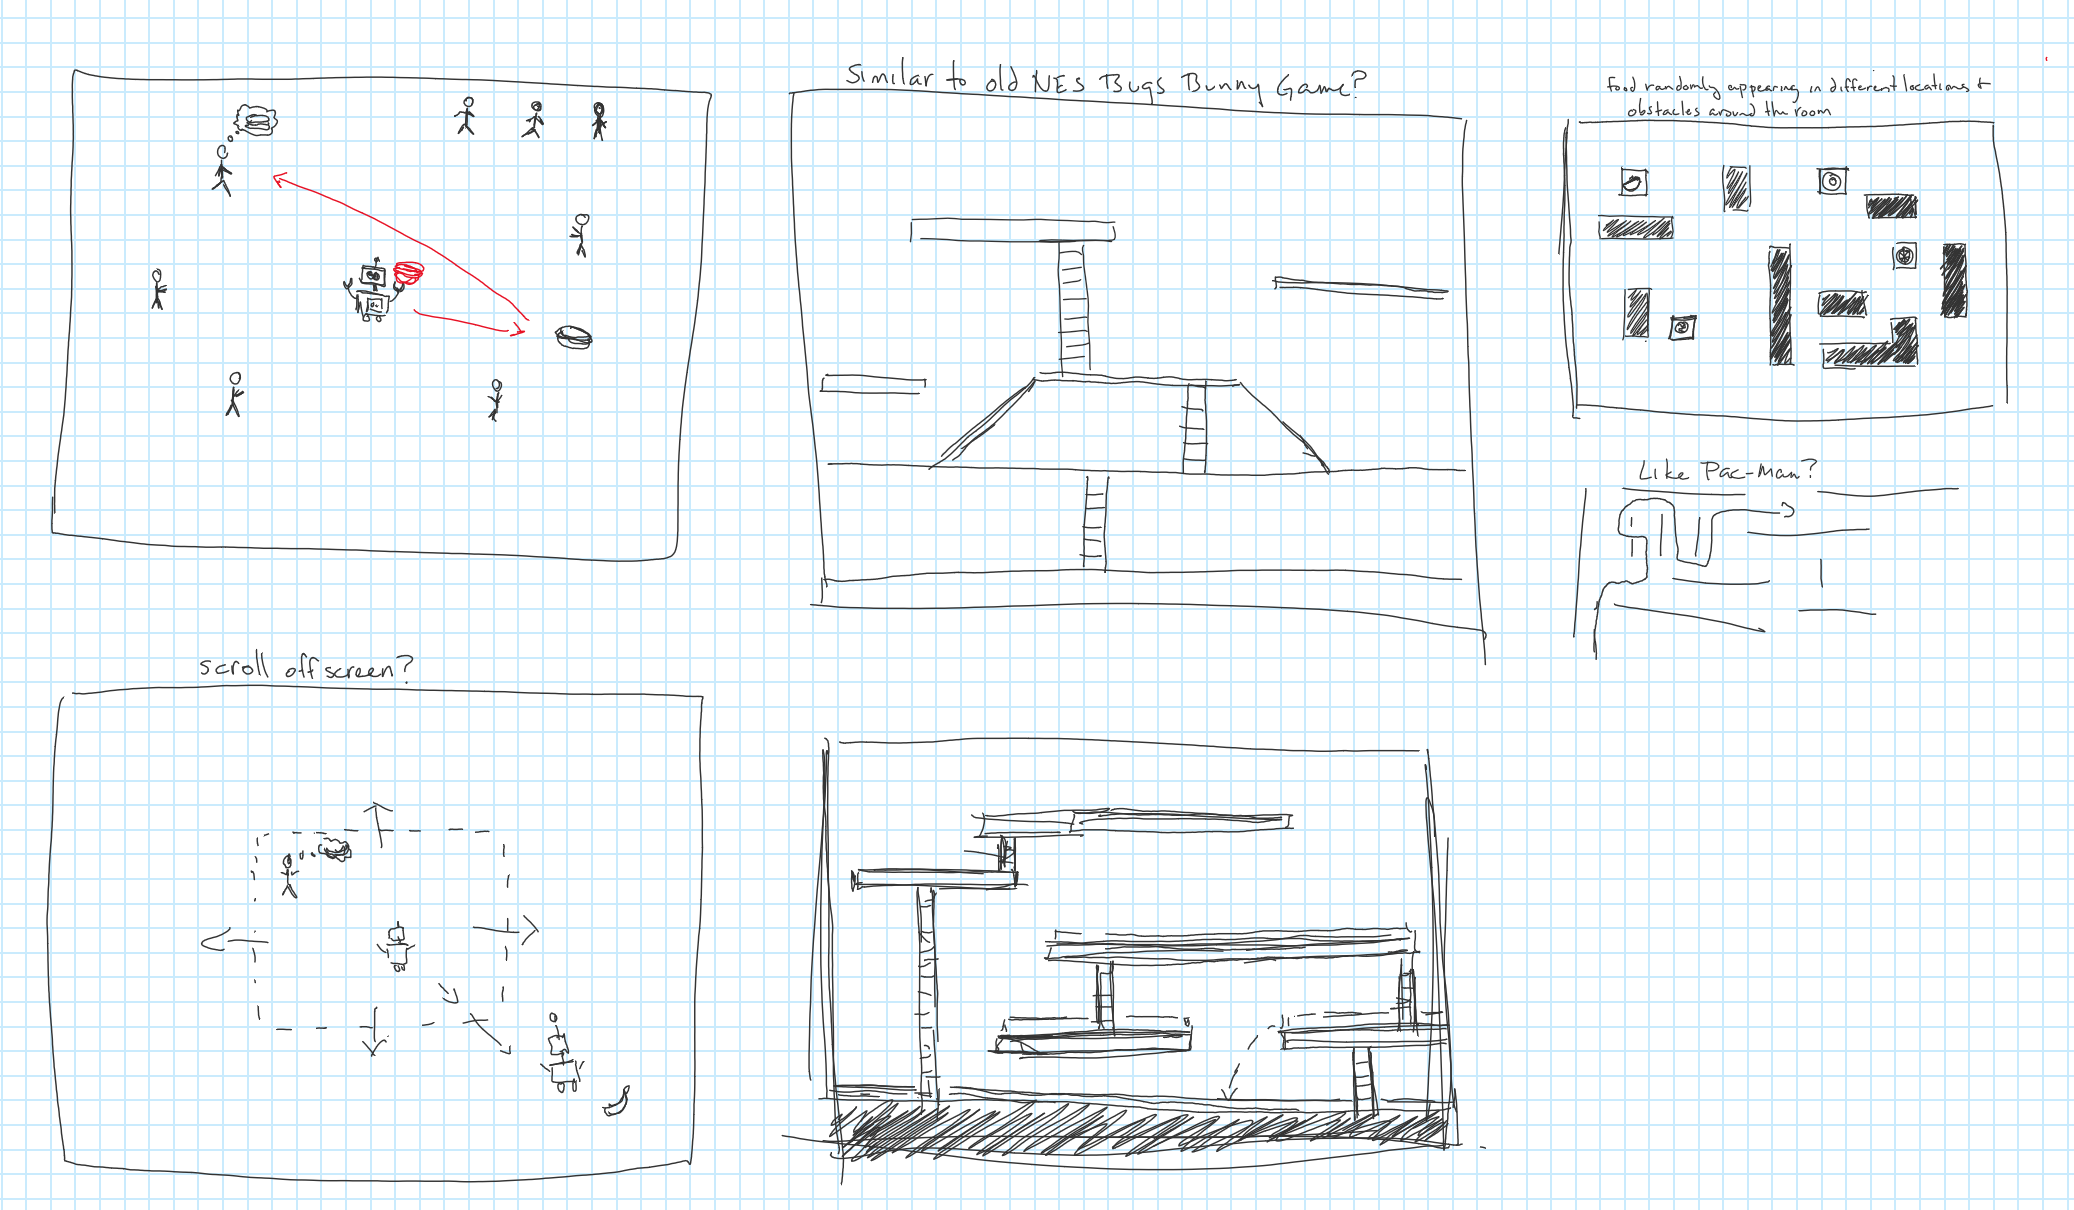 Similar to old NES Bugs Bunny Game?
Food randomly appearing in different locations +
obstacles around the room
Like Pac-Man?
scroll off screen?